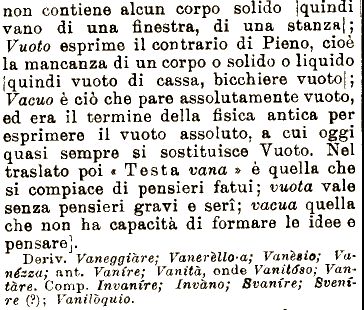 non contiene alcun corpo solido [quindi
vano di una finestra, di una stanza];
Vuoto esprime il contrario di Pieno, cioè
la mancanza di un corpo o solido o liquido
[quindi vuoto di cassa, bicchiere vuoto];
Vacuo è ciò che pare assolutamente vuoto,
ed era il termine della fisica antica per
esprimere il vuoto assoluto, a cui oggi
quasi sempre si sostituisce Vuoto. Nel
traslato poi « Testa vana » è quella che
si compiace di pensieri fatui; vuota vale
senza pensieri gravi e serî; vacua quella
che non ha capacità di formare le idee e
pensare].
Deriv. Vaneggiàre; Vanerèllo-a; Vanèsio; Va-
nézza; ant. Vaníre; Vanità, onde Vanitóso; Van-
tàre. Comp. Invaníre; Invàno; Svaníre; Svení-
re (?); Vanilòquio.